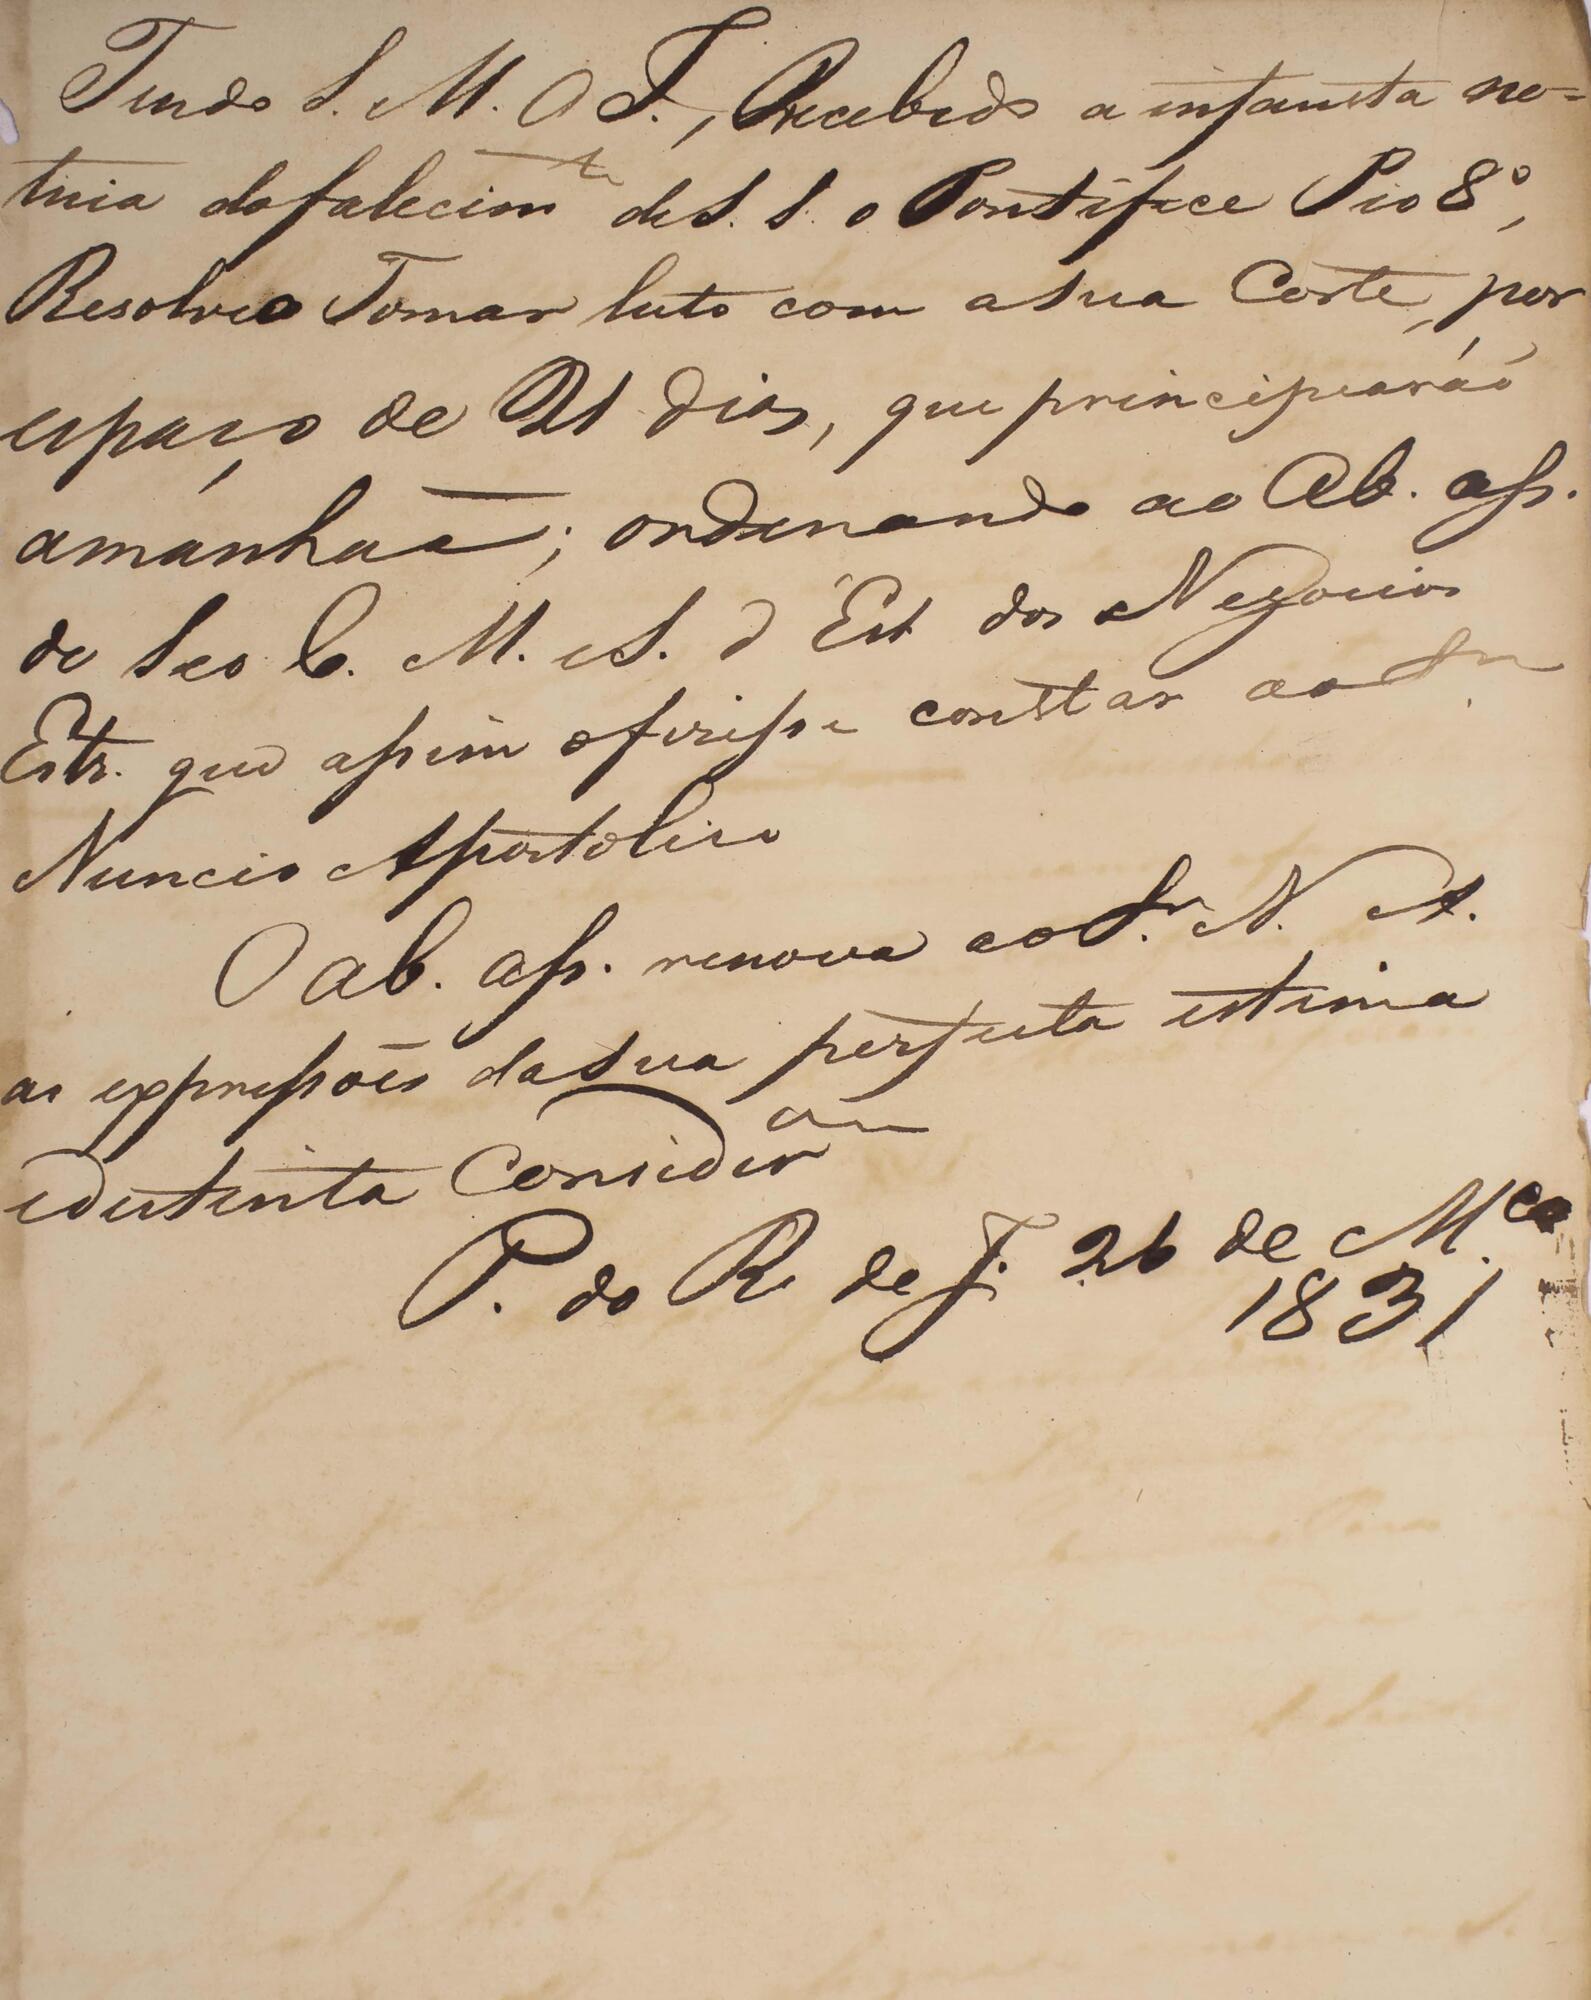 Tendo S. M. O I., Recebido a infausta no-
ticia do falecim.to de S. S. o Pontifice Pio 8º,
Resolveo Tomar luto com a sua Corte, por
espaço de 21 dias, que principiaráõ
amanhaã; ordenando ao Ab. ass.
do Seo C. M. e S. d'Est dos Negocios
Estr. que assim o fizesse constar ao Sr.
Nuncio Apostolico
O ab. ass. renova ao S.r N. A.
as expressões da sua perfeita estima
e distinta Consider.am
P. do R. de J. 26 de M.ço
1831